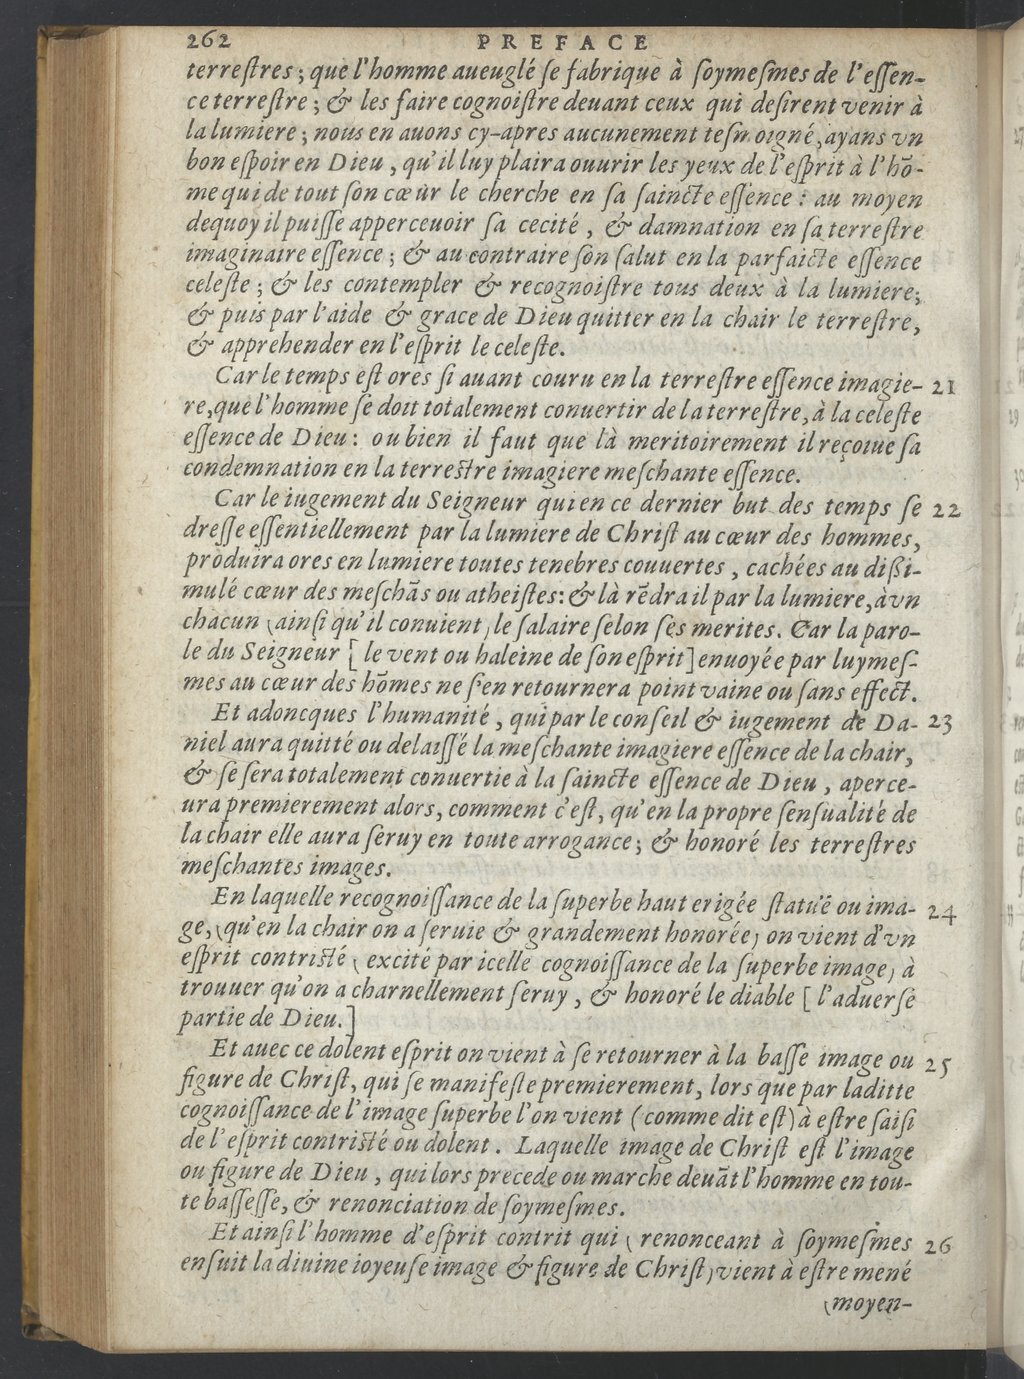 262 PREFACE
terreſtres ; que l'homme aueuglé ſe fabrique à ſoymeſmes de l'eſſen-
ce terreſtre ; & les faire cognoiſtre deuant ceux qui deſirent venir à
la lumiere ; nous en auons cy-apres aucunement teſmoigné, ayans vn
bon eſpoir en Dieu , qu'il luy plaira ouurir les yeux de l'eſprit à l'hõ-
me qui de tout ſon cœur le cherche en ſa ſaincte eſſence : au moyen
dequoy il puiſſe apperceuoir ſa cecité , & damnation en ſa terreſtre
imaginaire eſſence ; & au contraire ſon ſalut en la parfaicte eſſence
celeſte ; & les contempler & recognoiſtre tous deux à la lumiere;
& puis par l'aide & grace de Dieu quitter en la chair le terreſtre,
& apprehender en l'eſprit le celeſte.
Car le temps eſt ores ſi auant couru en la terreſtre eſſence imagie- 21
re, que l'homme ſe doit totalement conuertir de la terreſtre, à la celeſte
eſſence de Dieu : ou bien il faut que là meritoirement il reçoiue ſa
condemnation en la terreſtre imagiere meſchante eſſence.
Car le iugement du Seigneur qui en ce dernier but des temps ſe 22
dreſſe eſſentiellement par la lumiere de Chriſt au cœur des hommes,
produira ores en lumiere toutes tenebres couuertes , cachées au diſſi-
mulé cœur des meſchãs ou atheiſtes: & là rẽdra il par la lumiere, à vn
chacun (ainſi qu'il conuient) le ſalaire ſelon ſes merites. Car la paro-
le du Seigneur [ le vent ou haleine de ſon eſprit] enuoyée par luymeſ-
mes au cœur des hõmes ne s'en retournera point vaine ou ſans effect.
Et adoncques l'humanité , qui par le conſeil & iugement de Da- 23
niel aura quitté ou delaiſſé la meſchante imagiere eſſence de la chair,
& ſe ſera totalement conuertie à la ſaincte eſſence de Dieu , aperce-
ura premierement alors, comment c'eſt, qu'en la propre ſenſualité de
la chair elle aura ſeruy en toute arrogance; & honoré les terreſtres
meſchantes images.
En laquelle recognoiſſance de la ſuperbe haut erigée ſtatuë ou ima- 24
ge, (qu'en la chair on a ſeruie & grandement honorée) on vient d'vn
eſprit contriſté ( excité par icelle cognoiſſance de la ſuperbe image) à
trouuer qu'on a charnellement ſeruy , & honoré le diable [ l'aduerſe
partie de Dieu.]
Et auec ce dolent eſprit on vient à ſe retourner à la baſſe image ou 25
figure de Chriſt, qui ſe manifeſte premierement, lors que par laditte
cognoiſſance de l'image ſuperbe l'on vient (comme dit eſt) à eſtre ſaiſi
de l'eſprit contriſté ou dolent . Laquelle image de Chriſt eſt l'image
ou figure de Dieu , qui lors precede ou marche deuãt l'homme en tou-
te baſſeſſe, & renonciation de ſoymeſmes.
Et ainſi l'homme d'eſprit contrit qui ( renonceant à ſoymeſmes 26
enſuit la diuine ioyeuſe image & figure de Chriſt) vient à eſtre mené
(moyen-